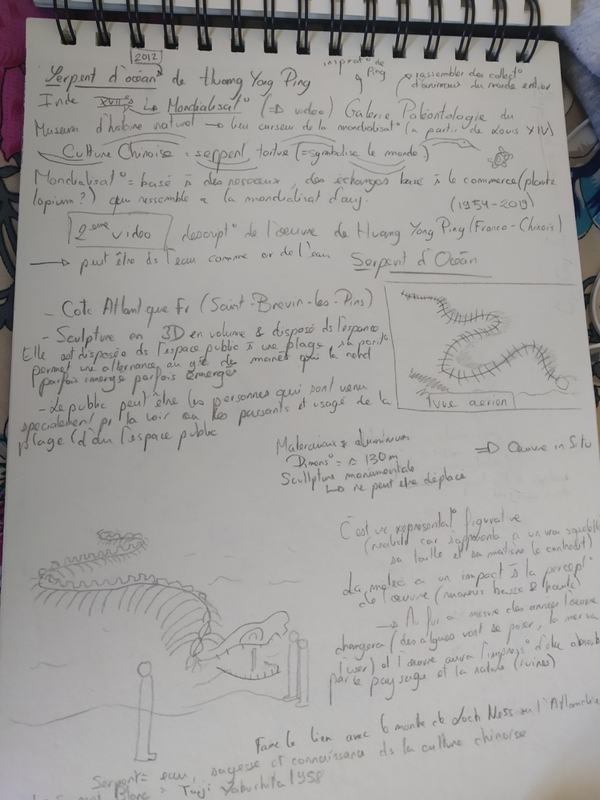 2012
Serpent d'océan de Huang Yong Ping
inspirat° de Ping
rassembler des collect° d'animaux du monde entier
Inde XVII°s la Mondialisat° (=> video) Galerie Paléontologie du
Museum d'histoire naturel → lieu curseur de la mondialisat° (à partir de Louis XIV)
Culture Chinoise : serpent tortue (= symbolise le monde)
Mondialisat° = basé à des reseaux, des échanges basé à le commerce (plante
(opium?) qui ressemble a la mondialisat d'auj.
(1954-2019)
2eme video descript° de l'œuvre de Huang Yong Ping (Franco-Chinois)
→ peut être ds l'eau comme or de l'eau Serpent d'Océan
- Cote Atlantique Fr (Saint-Brevin-les-Pins)
- Sculpture en 3D en volume & disposé ds l'espace
Elle est disposée ds l'espace public à une plage, sa
permet une alternance au gré des marées qui la rend
parfois immergé parfois émergés
- Le public peut être les personnes qui sont venu
specialement pr la voir ou les passants et usagé de la
plage (d'du l'espace public
1 vue aerien
Materiaux = aluminium
Dimens° = ≈ 130 m
Scullpture monumentale
↳ ne peut être déplacé
=> Œuvre in Situ
C'est une représentat° figurative
(réaliste car s'apparente a un vrai squelette
sa taille et sa matière le
La météo a un impact à la percept°
de l'œuvre (marées basse & haute)
→ A fur a mesure des années l'œuvre
changera (des algues vont se poser, la mer va
l'user) et l'œuvre aura l'impress° d'être absorbé
par le paysage et la nature (ruines)
Faire le lien avec le monstre de Loch Ness ou l'Atlantide
Serpent = eau, sagesse et connaissance ds la culture chinoise
Serpent Blanc = Taiji Yabushita 1958